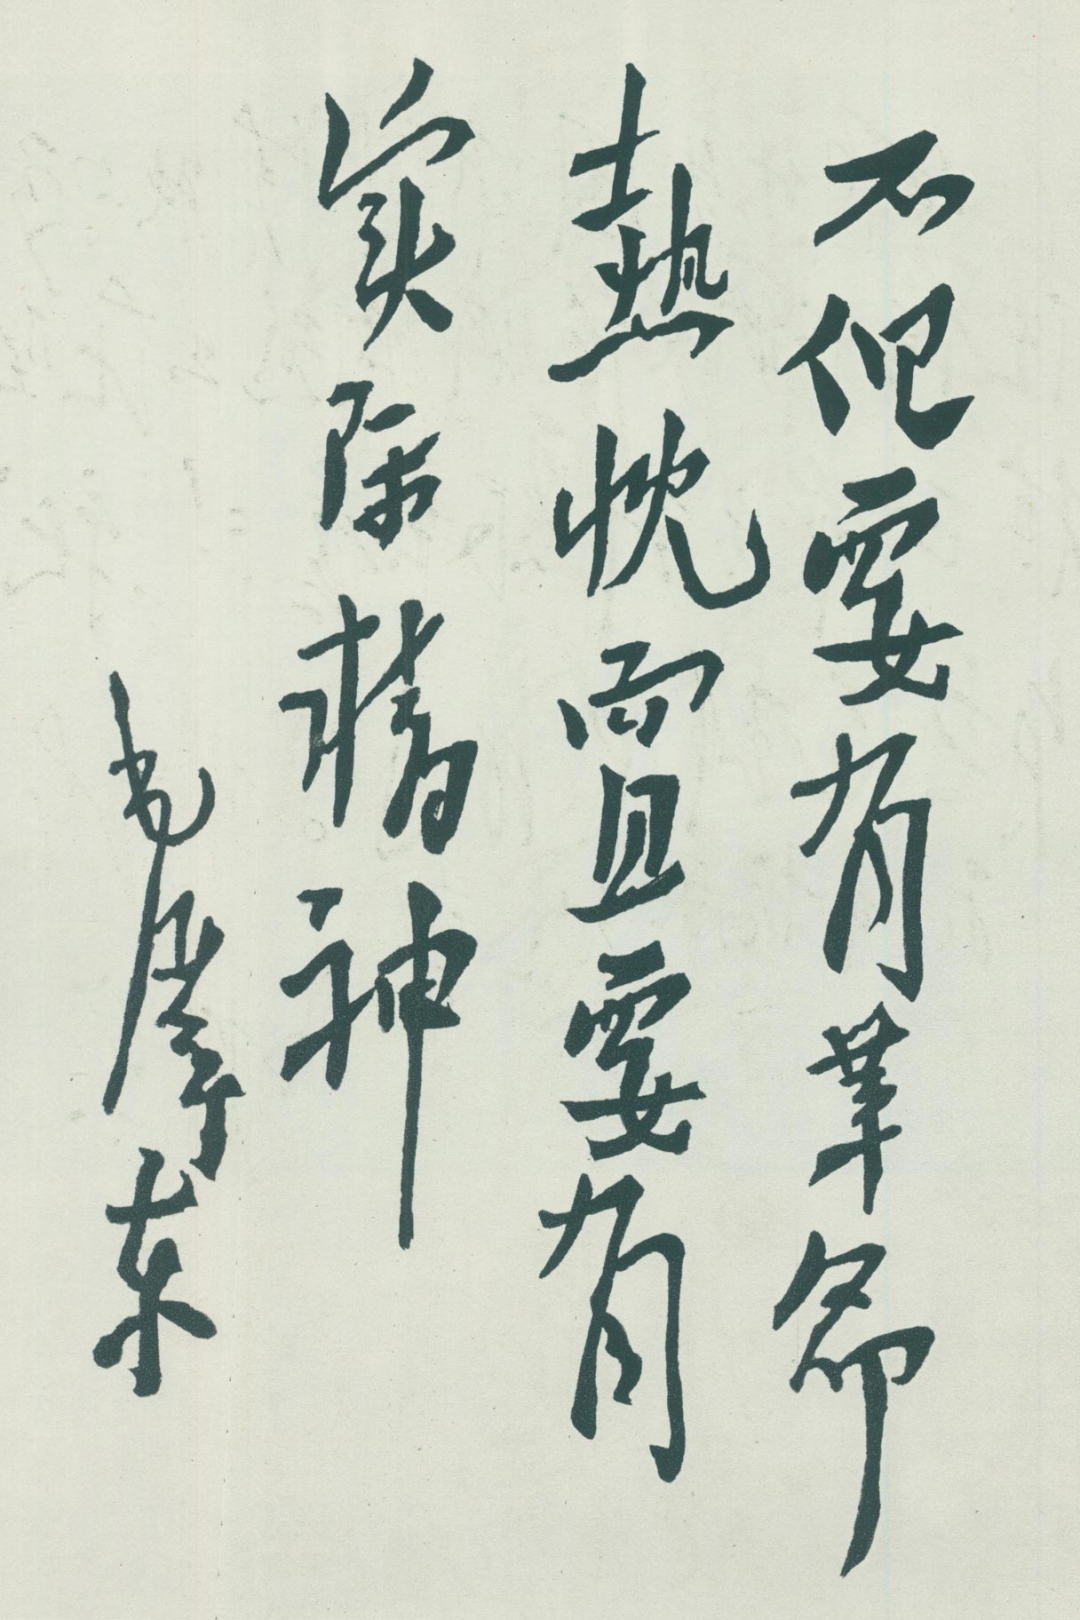 不但要有革命
熱忱而且要有
實际精神
毛澤东